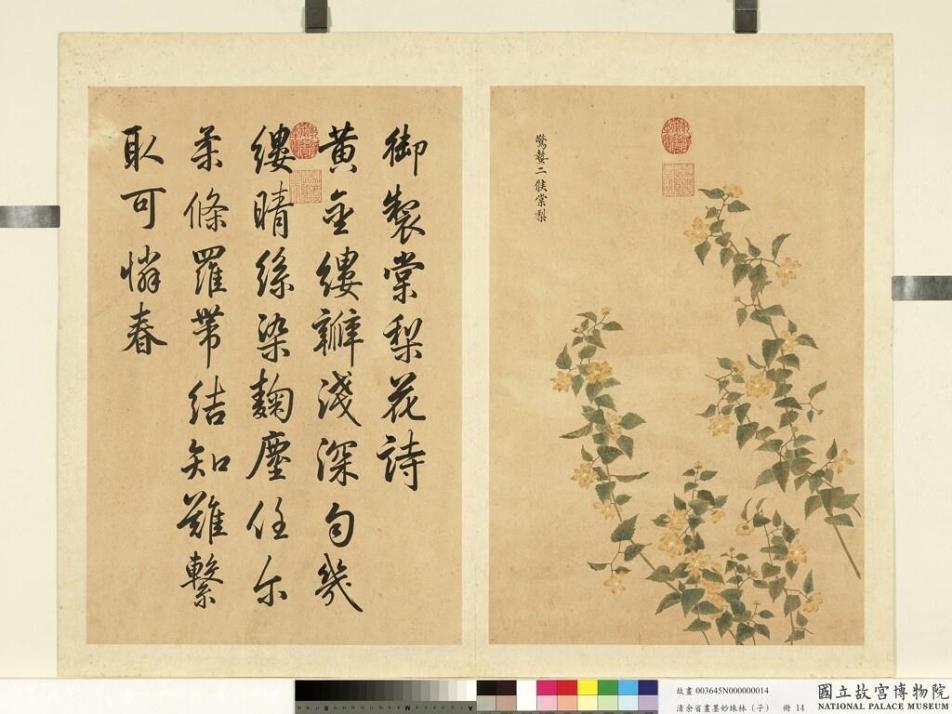 驚蟄二候棠梨
御製棠梨花詩
黄金縷瓣淺深勻幾
縷晴絲染麴塵任尔
柔條羅帶結知難繫
取可憐春
故畫 003645N000000014
清余省畫墨妙珠林（子） 冊 14
國立故宮博物院
NATIONAL PALACE MUSEUM